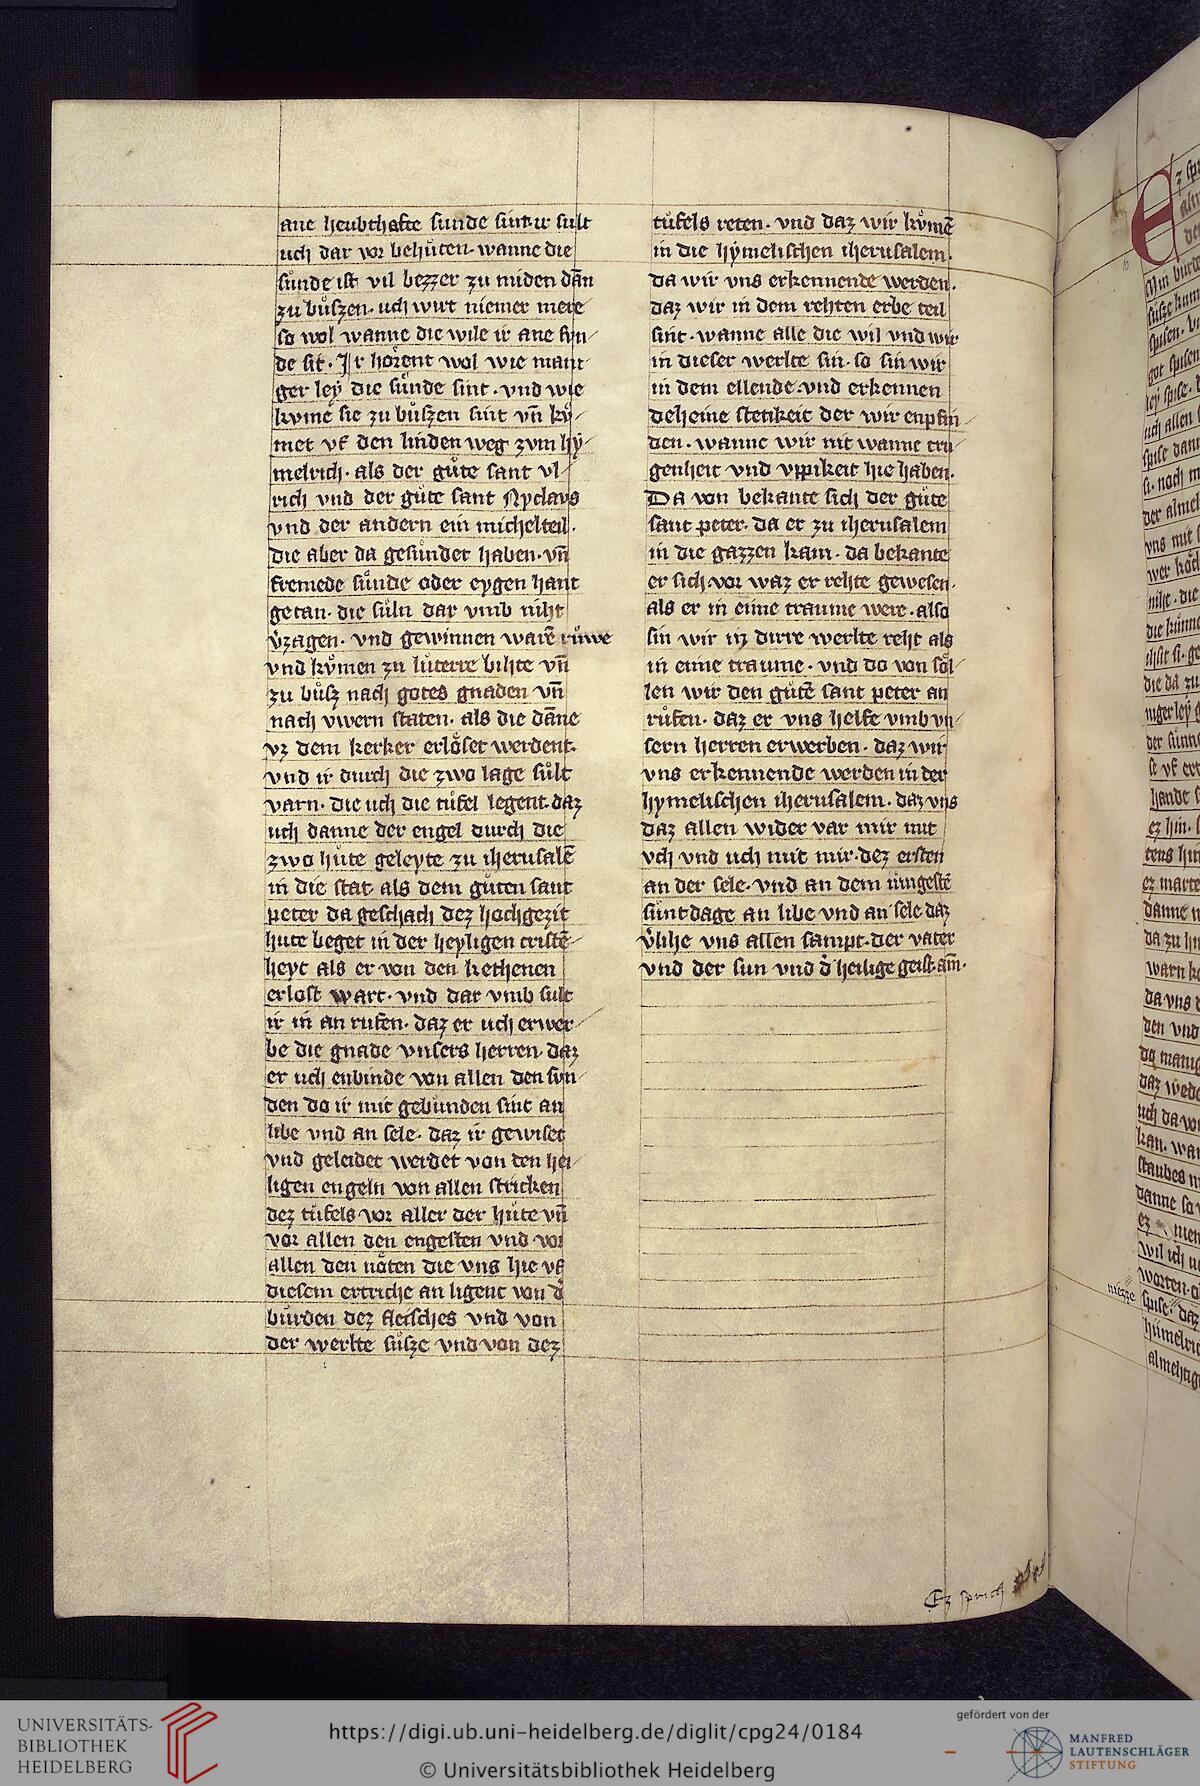 ane heubthafte sunde sint· ir sult
uch dar vor behuͤten· wanne die
suͤnde ist vil bezzer zu miden dan̄
zu buͤszen· uch wirt niemer mere
so wol wanne die wile ir ane sun⸗
de sit· Ir hoͤrent wol wie mani⸗
ger ley die suͤnde sint· vnd wie
kvmē sie zu buͤszen sint vn̄ kuͤ⸗
met vf den linden weg zvm hẏ⸗
melrich· als der guͤte sant vl⸗
rich vnd der guͤte sant Nyclavs
vnd der andern ein michelteil·
die aber da gesuͤndet haben· vn̄
fremede suͤnde oder eygen hant
getan· die suͤln dar vmb niht
v̓zagen· vnd gewinnen warē ruͤwe
vnd kuͤmen zu luͤterre bihte vn̄
zu buͤsz nach gotes gnaden vn̄
nach vwern staten· als die dāne
vz dem kerker erloͤset werdent·
vnd ir durch die zwo lage suͤlt
varn· die uch die tuͤfel legent· daz
uch danne der engel durch die
zwo huͤte geleyte zu iherusalē
in die stat· als dem guͤten sant
peter da geschach dez hochgezit
huͤte beget in der heyligen cristē⸗
heyt als er von den kethenen
erlost wart· vnd dar vmb sult
ir in an rufen· daz er uch erwer⸗
be die gnade vnsers herren· daz
er uch enbinde von allen den svn⸗
den do ir mit gebunden sint an
libe vnd an sele· daz ir gewiset
vnd geleidet werdet von den hei⸗
ligen engeln von allen stricken
dez tuͤfels vor aller der huͤte vn̄
vor allen den engesten vnd vor
allen den noͤten die vns hie vf
diesem ertriche an ligent von d̓
buͤrden dez fleisches vnd von
der werlte suͤsze vnd von dez
tuͤfels reten· vnd daz wir kuͤmē
in die hẏmelischen iherusalem·
da wir vns erkennende werden·
daz wir in dem rehten erbe teil
sint· wanne alle die wil vnd wir
in dieser werlte sin· so sin wir
in dem ellende· vnd erkennen
deheine stetikeit der wir enpfin⸗
den· wanne wir nit wanne tru
genheit vnd vppikeit hie haben·
Da von bekante sich der guͤte
sant peter· da er zu iherusalem
in die gazzen kam· da bekante
er sich vor waz er rehte gewesen·
als er in eime traume were· also
sin wir in dirre werlte reht als
in eime traume· vnd do von soͤl⸗
len wir den guͤtē sant peter an
ruͤfen· daz er vns helfe vmb vn⸗
sern herren erwerben· daz wir
vns erkennende werden in der
hymelischen iherusalem· daz vns
daz allen wider var mir mit
vch vnd uch mit mir· dez ersten
an der sele· vnd an dem iungestē
suͤntdage an libe vnd an sele daz
v̓lihe vns allen sampt· der vater
vnd der sun vnd d̓ heilige geist· am̄·
Ez sprich
nuzze
UNIVERSITÄTS-
BIBLIOTHEK
HEIDELBERG
https://digi.ub.uni-heidelberg.de/diglit/cpg24/0184
© Universitätsbibliothek Heidelberg
gefördert von der
MANFRED
LAUTENSCHLÄGER
STIFTUNG